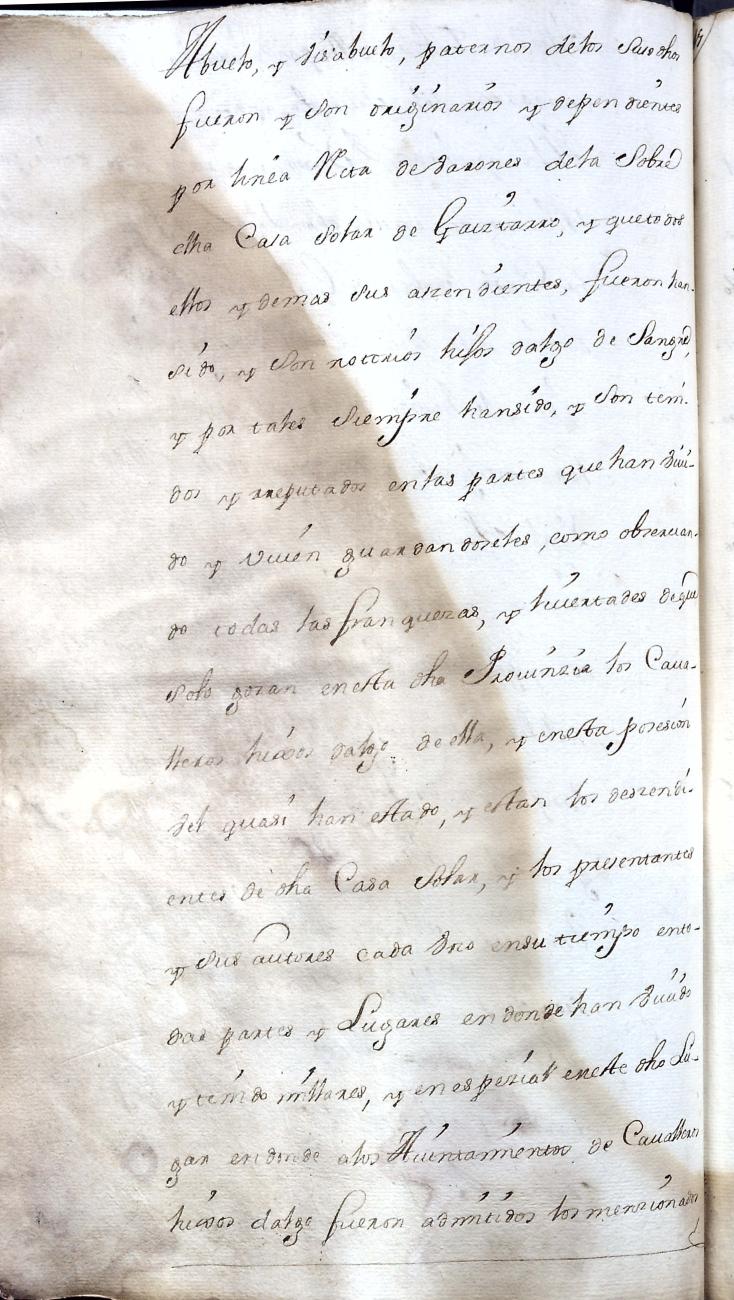 Abuelo, y visabuelo, paternos delos Susodhos
fueron y Son originarios y dependientes
por linea Recta de varones dela Sobre
dha Casa Solar de Gaiztarro, y quetodos
ellos y demas sus aszendientes, fueron han
sido, y Son notorios hijos dalgo de Sangre,
y por tales Siempre hansido, y Son teni-
dos y rreputados enlas partes que han vivi-
do y viven guardandoseles, como observan-
do todas las franquezas, y livertades deque
Solo gozan enesta dha Provinzia los Cava-
lleros hixos dalgo de ella, y enesta posesion
vel quasi han estado, y estan los deszendi-
entes de dha Casa Solar, y los presentantes
y Sus autores cada Uno ensu tiempo ento-
das partes y Lugares en donde han vivido
y tenido millares, y en espezial eneste dho Lu-
gar en donde alos Aiuntamientos de Cavalleros
hixos dalgo fueron admitidos los menzionados